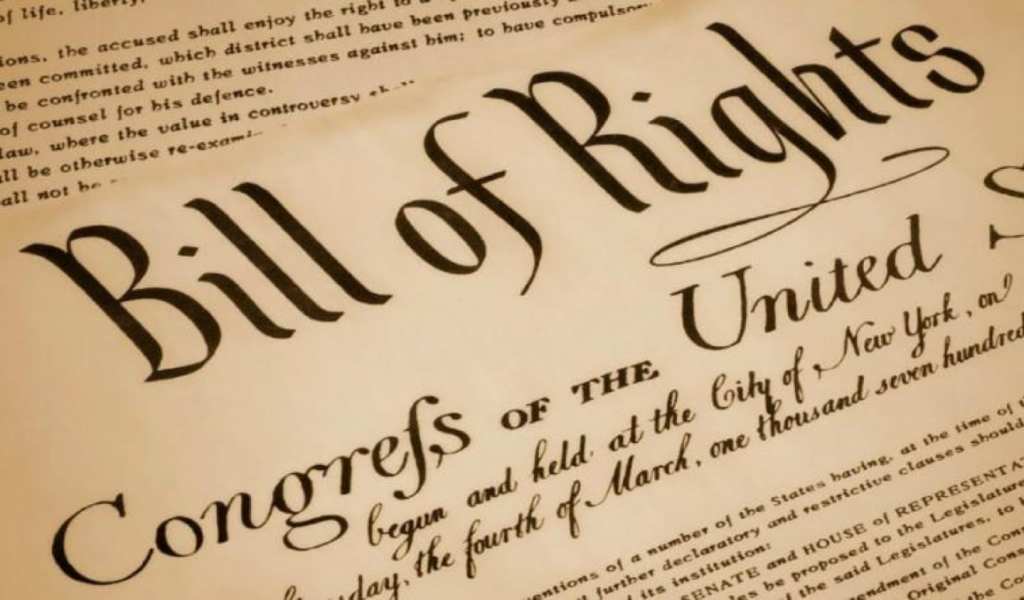 of life, liberty,
ions, the accused shall enjoy the right to a
een committed, which district shall have been previously
be confronted with the witnesses against him; to have compulsor
of counsel for his defence.
law, where the value in controversy sh
ll be otherwise re-exami
all not be
Bill of Rights
Congreſs OF THE United
begun and held at the City of New York, on
sday, the fourth of March, one thousand seven hundred
entions of a number of the States having, at the time of
further declaratory and restrictive clauses should
its institution:
SENATE and HOUSE of REPRESENTA
les be proposed to the Legislature
of the said Legislatures, to
endment of the Con
Original Cons